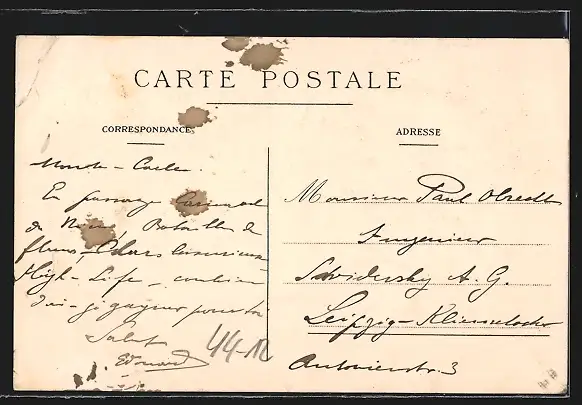 CARTE POSTALE
CORRESPONDANCE
ADRESSE
Monte-Carlo.
En passage Carnaval
de Nice, Bataille de
fleurs
High-Life, combien
dois-je gagner pour toi
Salut
Edouard
44-12
Monsieur Paul Obrecht
Ingenieur
Swidersky A. G.
Leipzig-Kleinzschocher
Antonienstr. 3